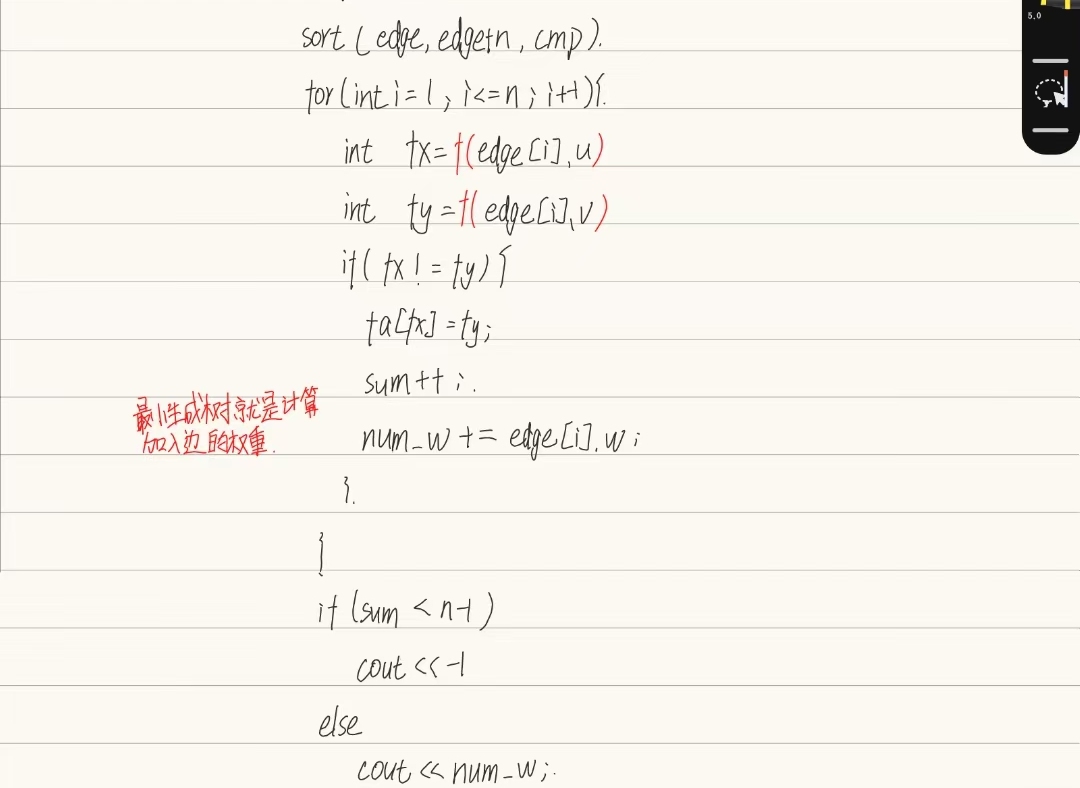 5.0
sort(edge, edge+n, cmp).
for(int i=1; i<=n; i++){
int fx=f(edge[i].u)
int fy=f(edge[i].v)
if(fx!=fy){
fa[fx]=fy;
sum++;
最小生成树就是计算
加入边的权重.
num_w += edge[i].w;
}.
}
if(sum<n-1)
cout<<-1
else
cout<<num_w;.